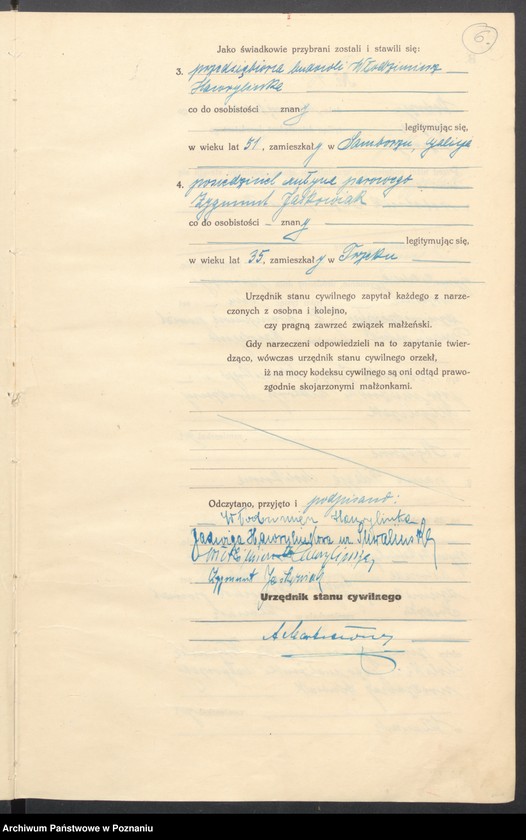 6.
Jako świadkowie przybrani zostali i stawili się:
3. przedsiębiorca budowli Włodzimierz
Hawrylinka
co do osobistości znany
legitymując się,
w wieku lat 51, zamieszkały w Samborzu,
4. posiedziciel młyna parowego
Zygmunt Jaśkowiak
co do osobistości – znany
legitymując się,
w wieku lat 35, zamieszkały w Trzeku
Urzędnik stanu cywilnego zapytał każdego z narze-
czonych z osobna i kolejno,
czy pragną zawrzeć związek małżeński.
Gdy narzeczeni odpowiedzieli na to zapytanie twier-
dząco, wówczas urzędnik stanu cywilnego orzekł,
iż na mocy kodeksu cywilnego są oni odtąd prawo-
zgodnie skojarzonymi małżonkami.
Odczytano, przyjęto i podpisano:
Włodzimierz Hawrylinka
Jadwiga
Zygmunt Jaśkowiak
Urzędnik stanu cywilnego
Archiwum Państwowe w Poznaniu